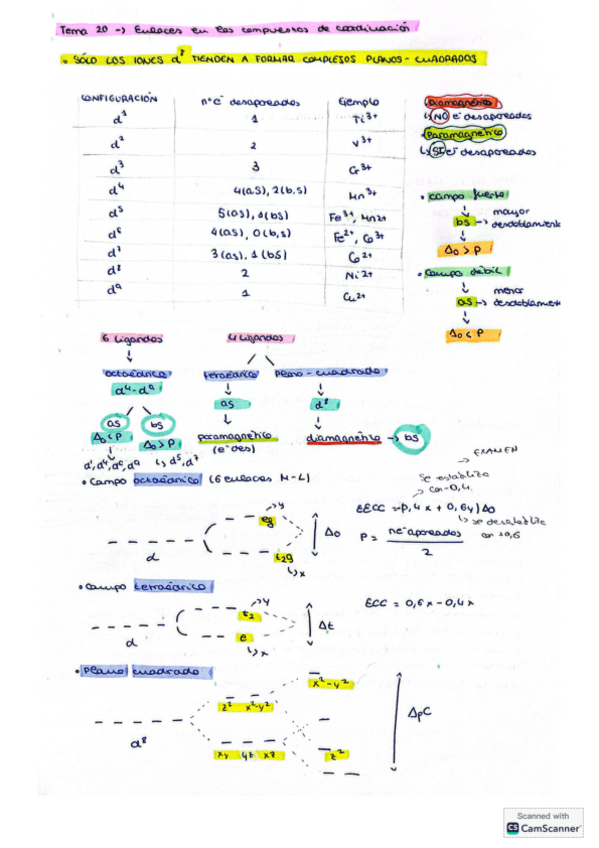 Tema 20 -> Enlaces en los compuestos de coordinación
• SÓLO LOS IONES d⁸ TIENDEN A FORMAR COMPLEJOS PLANOS-CUADRADOS
CONFIGURACIÓN nº e⁻ desapareados Ejemplo
d¹ 1 Ti³⁺
d² 2 V³⁺
d³ 3 Cr³⁺
d⁴ 4(a.S), 2(b,s) Mn³⁺
d⁵ 5(as), 1(bs) Fe³⁺, Mn²⁺
d⁶ 4(as), 0(b,s) Fe²⁺, Co³⁺
d⁷ 3(as), 1(bS) Co²⁺
d⁸ 2 Ni²⁺
d⁹ 1 Cu²⁺
Diamagnético
↳ NO e⁻ desapareados
Paramagnético
↳ SI e⁻ desapareados
• Campo fuerte
bs -> mayor desdoblamient
Δo > P
• Campo débil
menor
as -> desdoblamient
Δo < P
6 ligandos 4 ligandos
octaédrico tetraédrico plano-cuadrado
d⁴-d⁹ as d⁸
as bs
Δo < P Δo > P
paramagnético diamagnético -> bs
(e⁻des)
• Campo octaédrico (6 enlaces M-L)
EXAMEN
Se estabiliza
con -0,4
EECC = (-0,4x + 0,6y)Δo
↳ se desestabiliza
con +0,6
P = nº e⁻ apareados
2
eg y
d Δo
t2g
↳ x
• Campo tetraédrico
ECC = 0,6x - 0,4x
t2 y
d Δt
e
↳ x
• Plano cuadrado
x²-y²
z² x²-y²
d⁸ ΔpC
xy yz xz z²
Scanned with
CS CamScanner